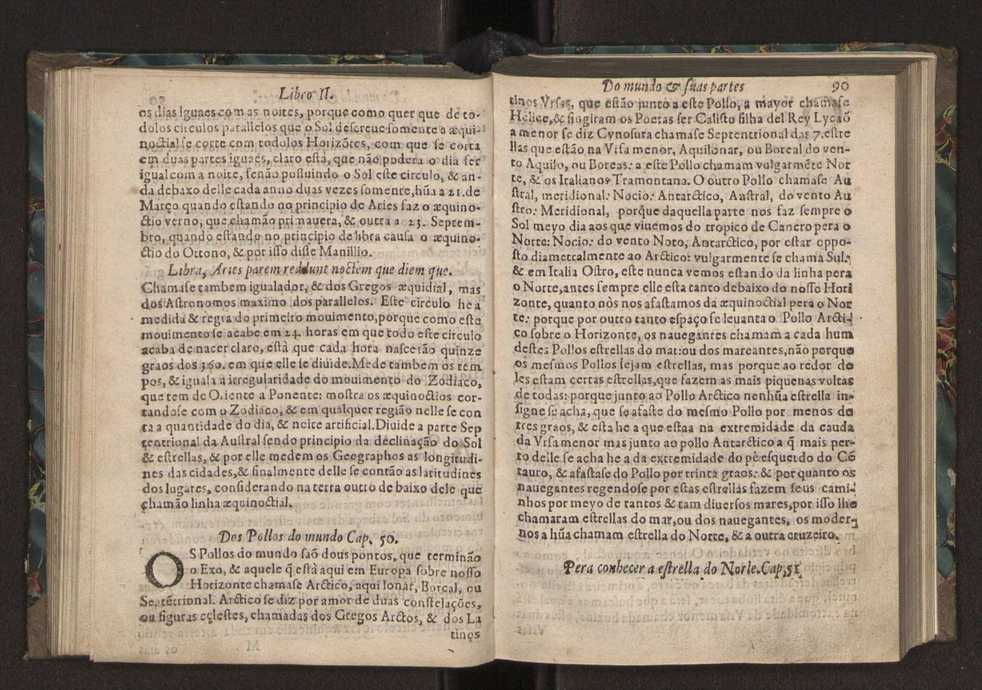 Libro II.
os dias iguaes com as noites, porque como quer que de to-
dolos circulos parallelos que o Sol descreue somente o æqui-
noctial se corte com todolos Horizõtes, com que se corta
em duas partes iguaes, claro está, que não podera o dia ser
igual com a noite, senão possuindo o Sol este circulo, & an-
da debaxo delle cada anno duas vezes somente, hũa a 21. de
Março quando estando no principio de Aries faz o æquino-
ctio verno, que chamão primauera, & outra a 23. Septem-
bro, quando estando no principio de libra causa o æquino-
ctio do Ottono, & por isso disse Manillio.
Libra, Aries parem reddunt noctem que diem que.
Chamase tambem igualador, & dos Gregos æquidial, mas
dos Astronomos maximo dos parallelos. Este circulo he a
medida & regra do primeiro mouimento, porque como este
mouimento se acabe em 24. horas em que todo este circulo
acaba de nacer claro, està que cada hora nascerão quinze
graos dos 360. em que elle se diuide. Mede tambem os tem
pos, & iguala a irregularidade do mouimento do Zodiaco,
que tem de Oriente a Ponente: mostra os æquinoctios cor-
tandose com o Zodiaco, & em qualquer região nelle se con
ta a quantidade do dia, & noite artificial. Diuide a parte Sep
tentrional da Austral sendo principio da declinação do Sol
& estrellas, & por elle medem os Geographos as longitudi-
nes das cidades, & finalmente delle se contão as latitudines
dos lugares, considerando na terra outro de baixo dele que
chamão linha æquinoctial.
Dos Pollos do mundo Cap. 50.
OS Pollos do mundo saõ dous pontos, que terminão
o Exo, & aquele q̃ està aqui em Europa sobre nosso
Horizonte chamase Arctico, aquilonar, Boreal, ou
Septẽtrional. Arctico se diz por amor de duas constelações,
ou figuras celestes, chamadas dos Gregos Arctos, & dos La
tinos
M
Do mundo & suas partes 90
tinos Vrsas, que estão junto a este Pollo, a mayor chamase
Helice, & fingiram os Poetas ser Calisto filha del Rey Lycaõ
a menor se diz Cynosura chamase Septentrional das 7. estre
llas que estão na Vrsa menor, Aquilonar, ou Boreal do ven-
to Aquilo, ou Boreas: a este Pollo chamam vulgarmẽte Nor
te, & os Italianos Tramontana. O outro Pollo chamase Au
stral, meridional: Nocio: Antarctico, Austral, do vento Au
stro: Meridional, porque daquella parte nos faz sempre o
Sol meyo dia aos que viuemos do tropico de Cancro pera o
Norte: Nocio: do vento Noto, Antarctico, por estar oppo-
sto diametralmente ao Arctico: vulgarmente se chama Sul,
& em Italia Ostro, este nunca vemos estando da linha pera
o Norte, antes sempre elle esta tanto debaixo do nosso Hori
zonte, quanto nòs nos afastamos da æquinoctial pera o Nor
te: porque por outro tanto espaço se leuanta o Pollo Arcti-
co sobre o Horizonte, os nauegantes chamam a cada hum
destes Pollos estrellas do mar: ou dos mareantes, não porque
os mesmos Pollos sejam estrellas, mas porque ao redor de
les estam certas estrellas, que fazem as mais piquenas voltas
de todas: porque junto ao Pollo Arctico nenhũa estrella in-
signe se acha, que se afaste do mesmo Pollo por menos de
tres graos, & esta he a que estaa na extremidade da cauda
da Vrsa menor mas junto ao pollo Antarctico a q̃ mais per-
to delle se acha he a da extremidade do pè esquerdo do Cẽ
tauro, & afastase do Pollo por trinta graos: & por quanto os
nauegantes regendose por estas estrellas fazem seus cami-
nhos por meyo de tantos & tam diuersos mares, por isso lhe
chamaram estrellas do mar, ou dos nauegantes, os moder-
nos a hũa chamam estrella do Norte, & a outra cruzeiro.
Pera conhecer a estrella do Norte. Cap, 51